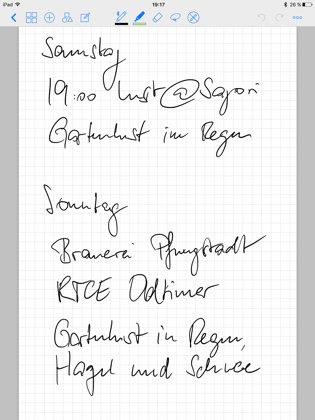 iPad 19:17 26 %
Samstag
19:00 Lust @ Sayori
Gartenlust im Regen
Sonntag
Brauerei Pfungstadt
Odtimer
Gartenlust in Regen,
Hagel und Schnee